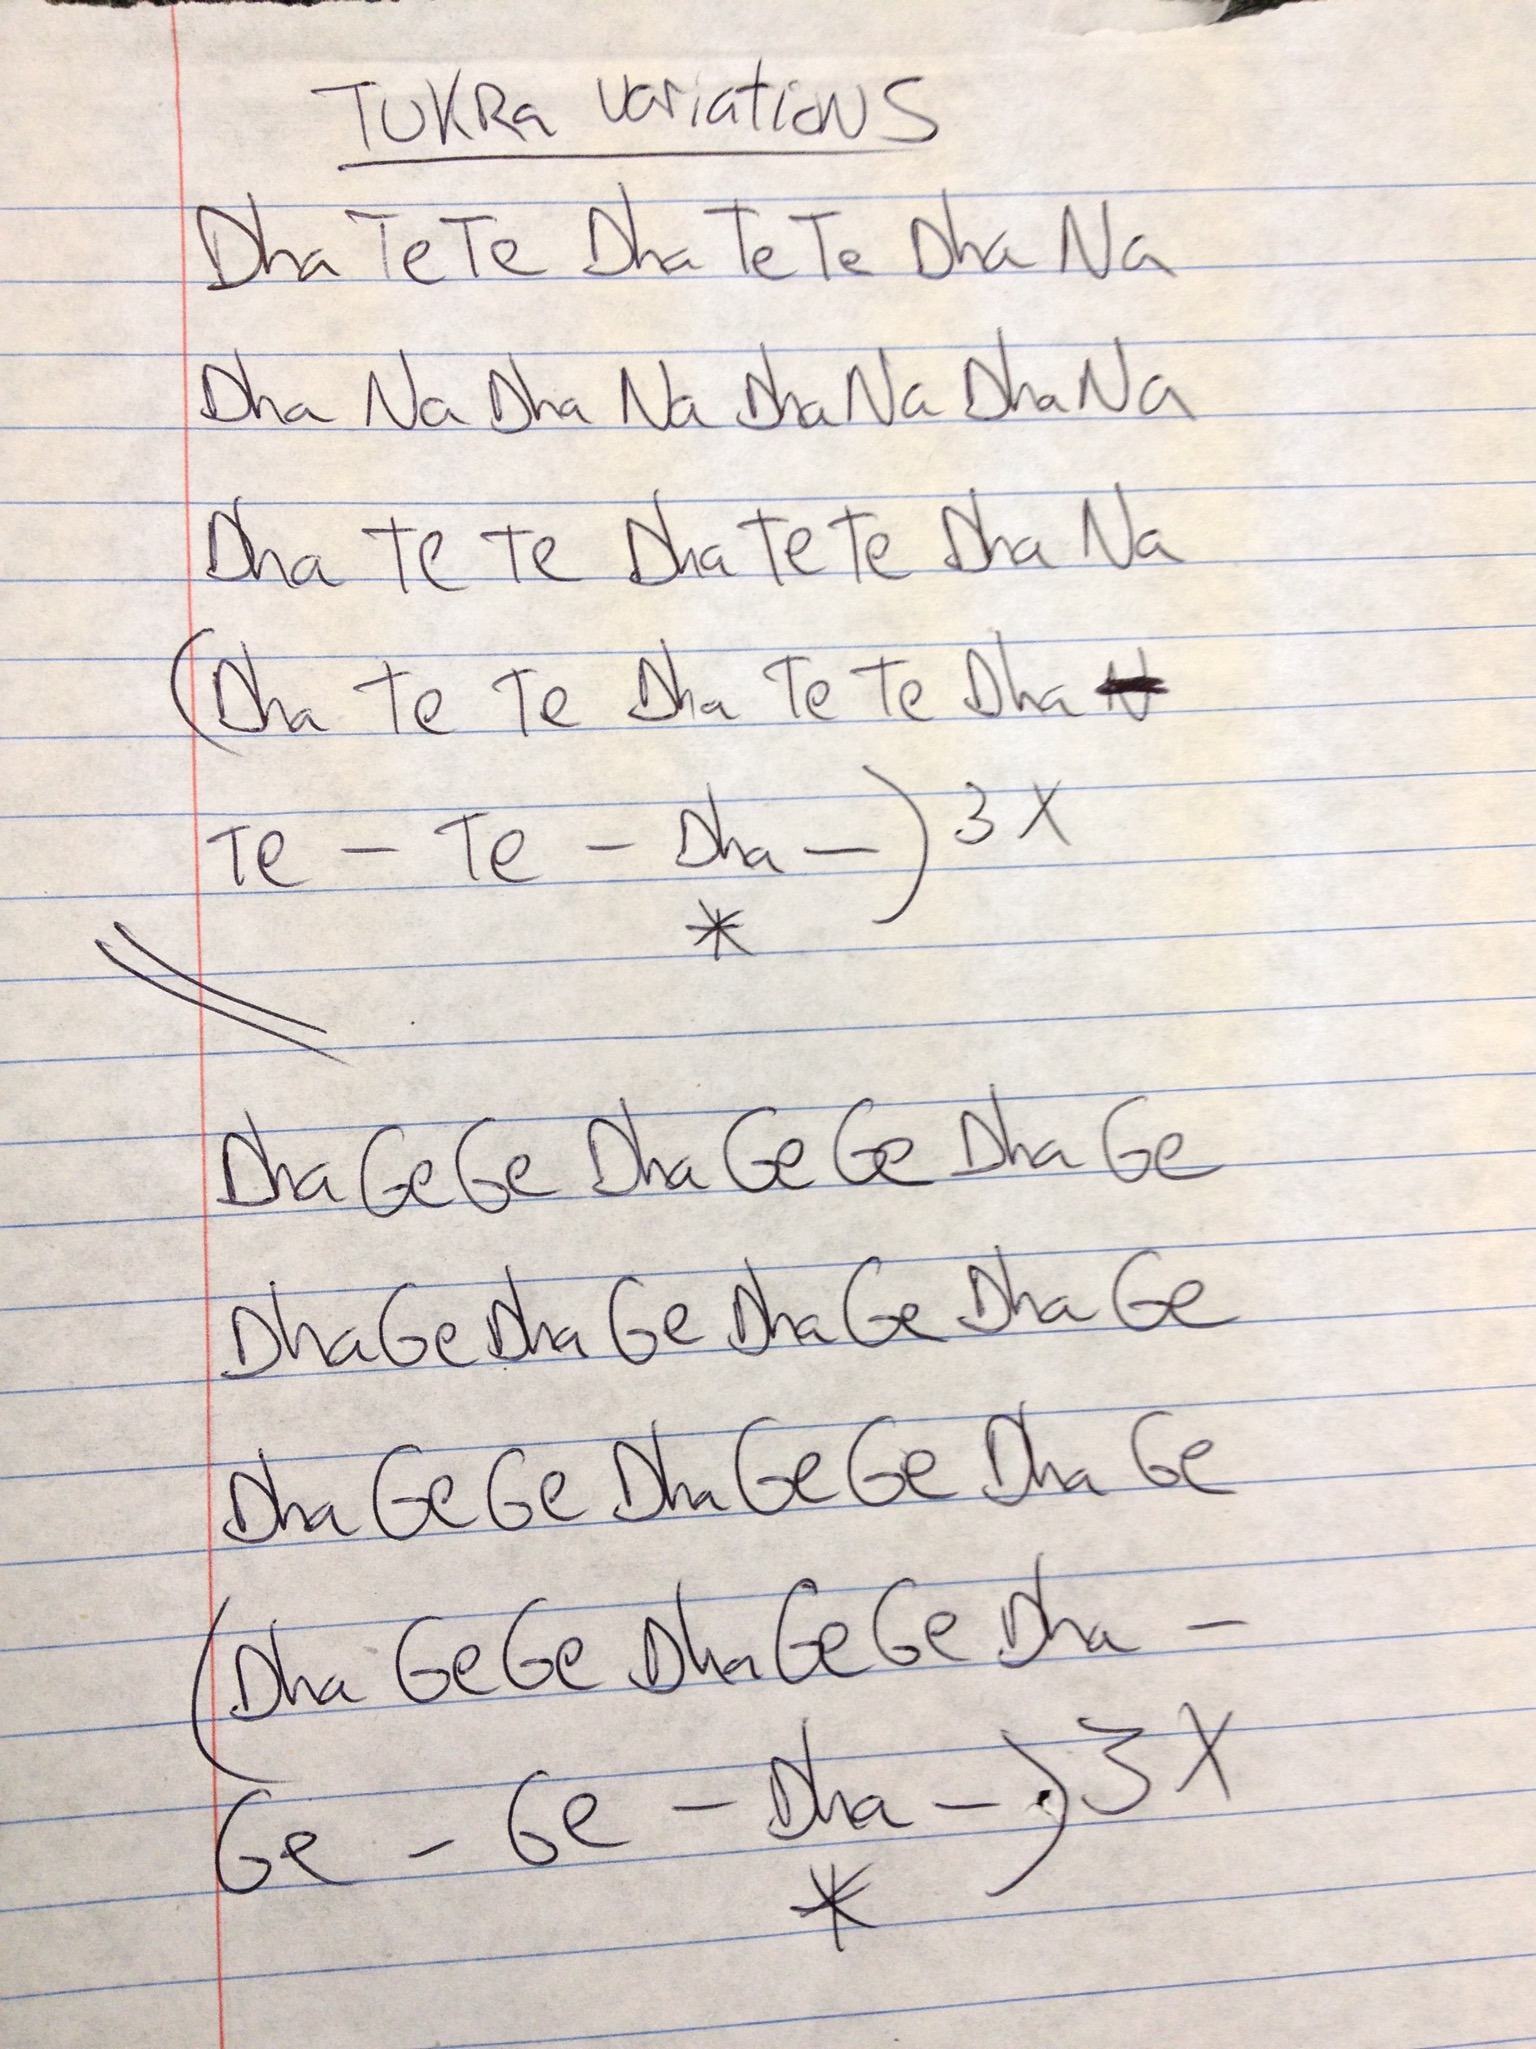 TUKRa variations
Dha Te Te Dha Te Te Dha Na
Dha Na Dha Na Dha Na Dha Na
Dha Te Te Dha Te Te Dha Na
(Dha Te Te Dha Te Te Dha –
Te – Te – Dha –) 3X
*
Dha Ge Ge Dha Ge Ge Dha Ge
Dha Ge Dha Ge Dha Ge Dha Ge
Dha Ge Ge Dha Ge Ge Dha Ge
(Dha Ge Ge Dha Ge Ge Dha –
Ge – Ge – Dha –) 3X
*